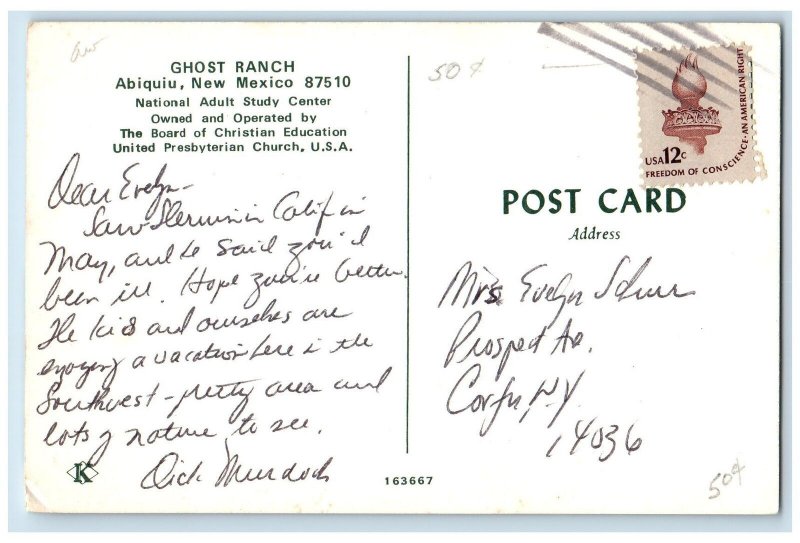 GHOST RANCH
Abiquiu, New Mexico 87510
National Adult Study Center
Owned and Operated by
The Board of Christian Education
United Presbyterian Church, U.S.A.
Dear Evelyn-
Saw in Calif in
May, and he said you'd
been ill. Hope you're better.
The kids and ourselves are
enjoying a vacation here in the
Southwest - pretty area and
lots of nature to see.
Dick Murdoch
K
163667
50¢
USA 12c
FREEDOM OF CONSCIENCE-AN AMERICAN RIGHT
POST CARD
Address
Mrs. Evelyn
Prospect Av.
Corfu, N.Y.
14036
50¢